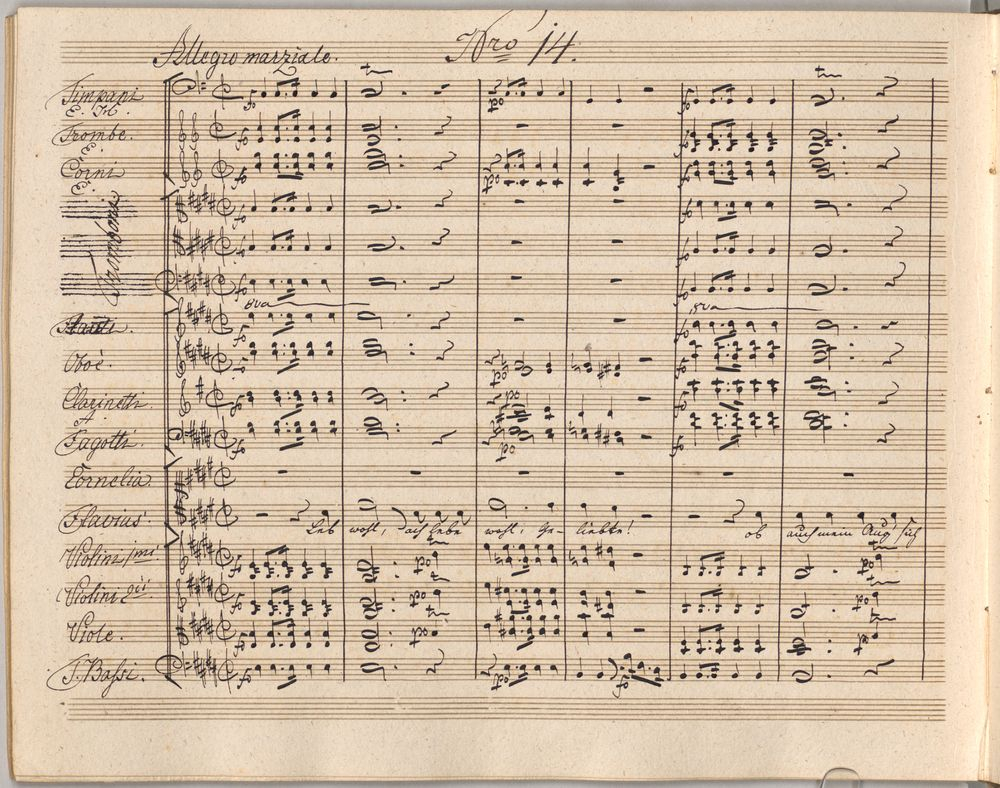 Allegro marziale. Nro 14.
Timpani
E. H.
Trombe.
E.
Corni
E.
Tromboni
Flauti.
8va
8va
Oboè.
Clarinetti.
A
Fagotti.
Cornelia.
Flavius.
Leb wohl, ach lebe wohl, Ge- liebte! ob auch mein Aug' sich
Violini 1mi
Violini 2di
Viole.
T. Bassi.